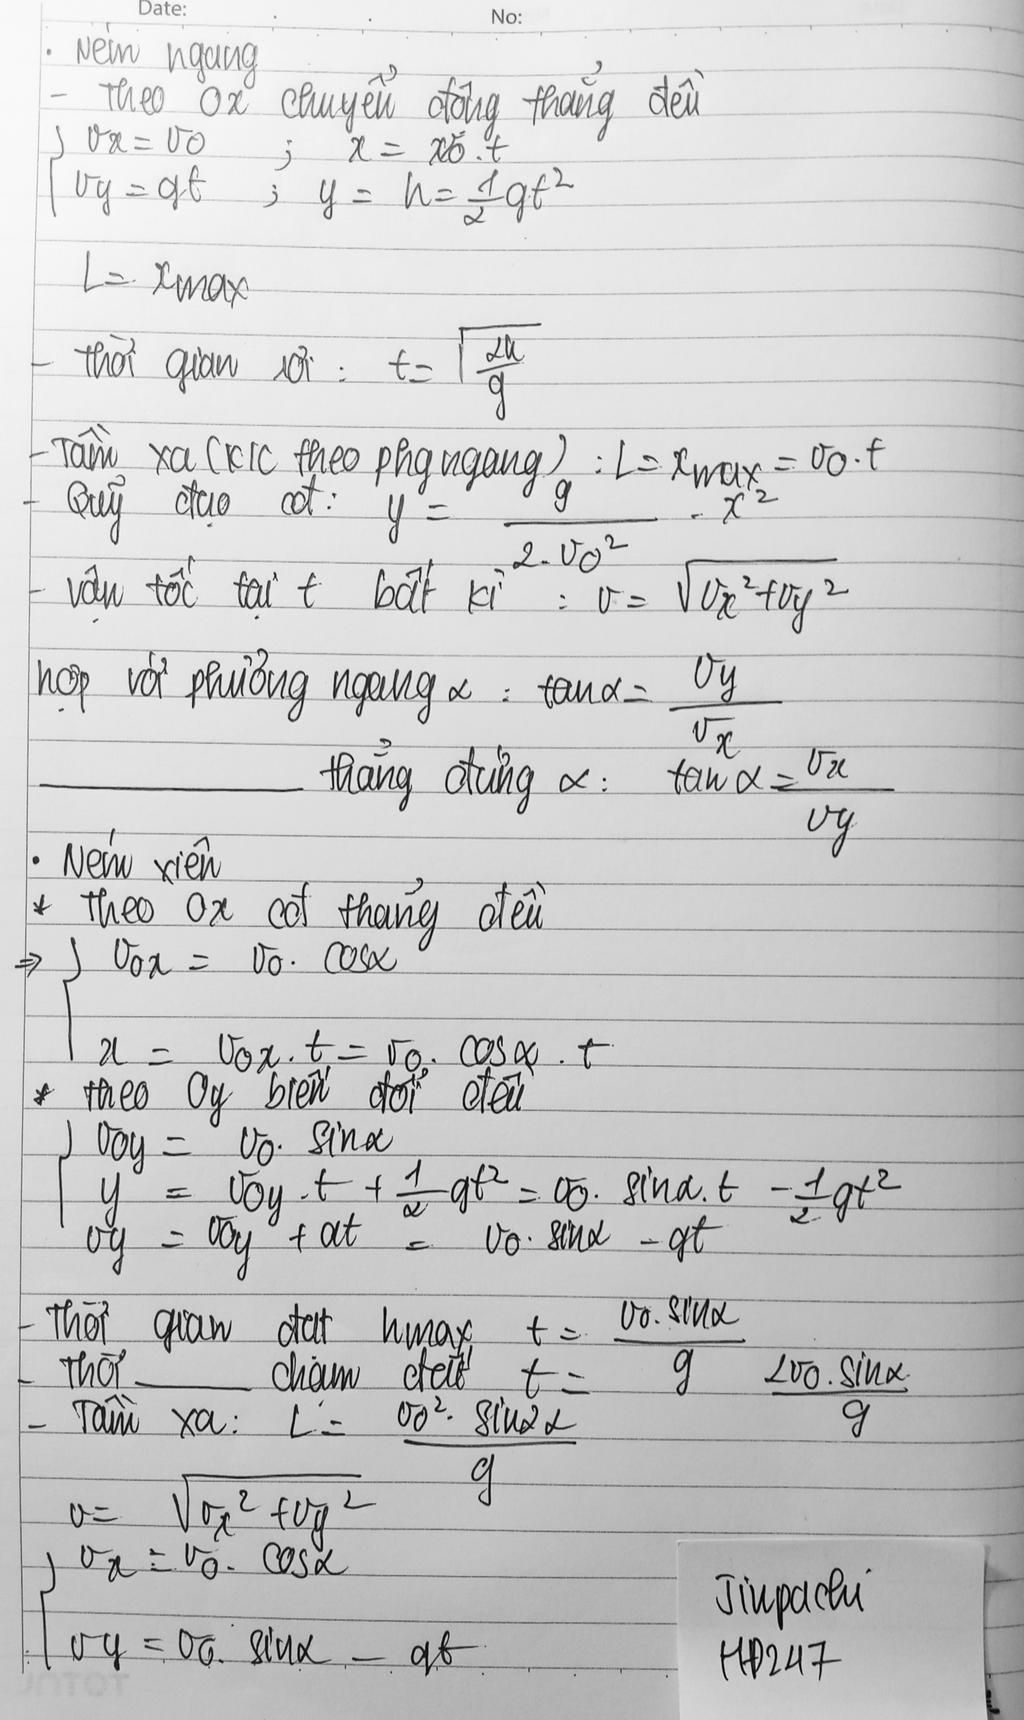 Date: No:
• Ném ngang
- Theo Ox chuyển động thẳng đều
{ vx = v0 ; x = x0.t
vy = gt ; y = h = 1/2 gt²
L = xmax
- Thời gian rơi : t = √(2h/g)
- Tầm xa (K/C theo phg ngang) : L = xmax = v0.t
- Quỹ đạo cđ: y = g/(2.v0²) . x²
- vận tốc tại t bất kì : v = √(vx² + vy²)
hợp với phương ngang α : tanα = vy/vx
______ thẳng đứng α : tan α = vx/vy
• Ném xiên
* Theo Ox cđ thẳng đều
⇒ { v0x = v0. cosα
x = v0x.t = v0. cosα . t
* theo Oy biến đổi đều
{ v0y = v0. sinα
y = v0y.t + 1/2 gt² = v0. sinα.t - 1/2 gt²
vy = v0y + at = v0. sinα - gt
- Thời gian đạt hmax t = v0.sinα/g
- Thời ______ chạm đất t = 2v0.sinα/g
- Tầm xa: L = v0². sin2α/g
v = √(vx² + vy²)
{ vx = v0. cosα
vy = v0. sinα - gt
Jinpachi
HĐ247